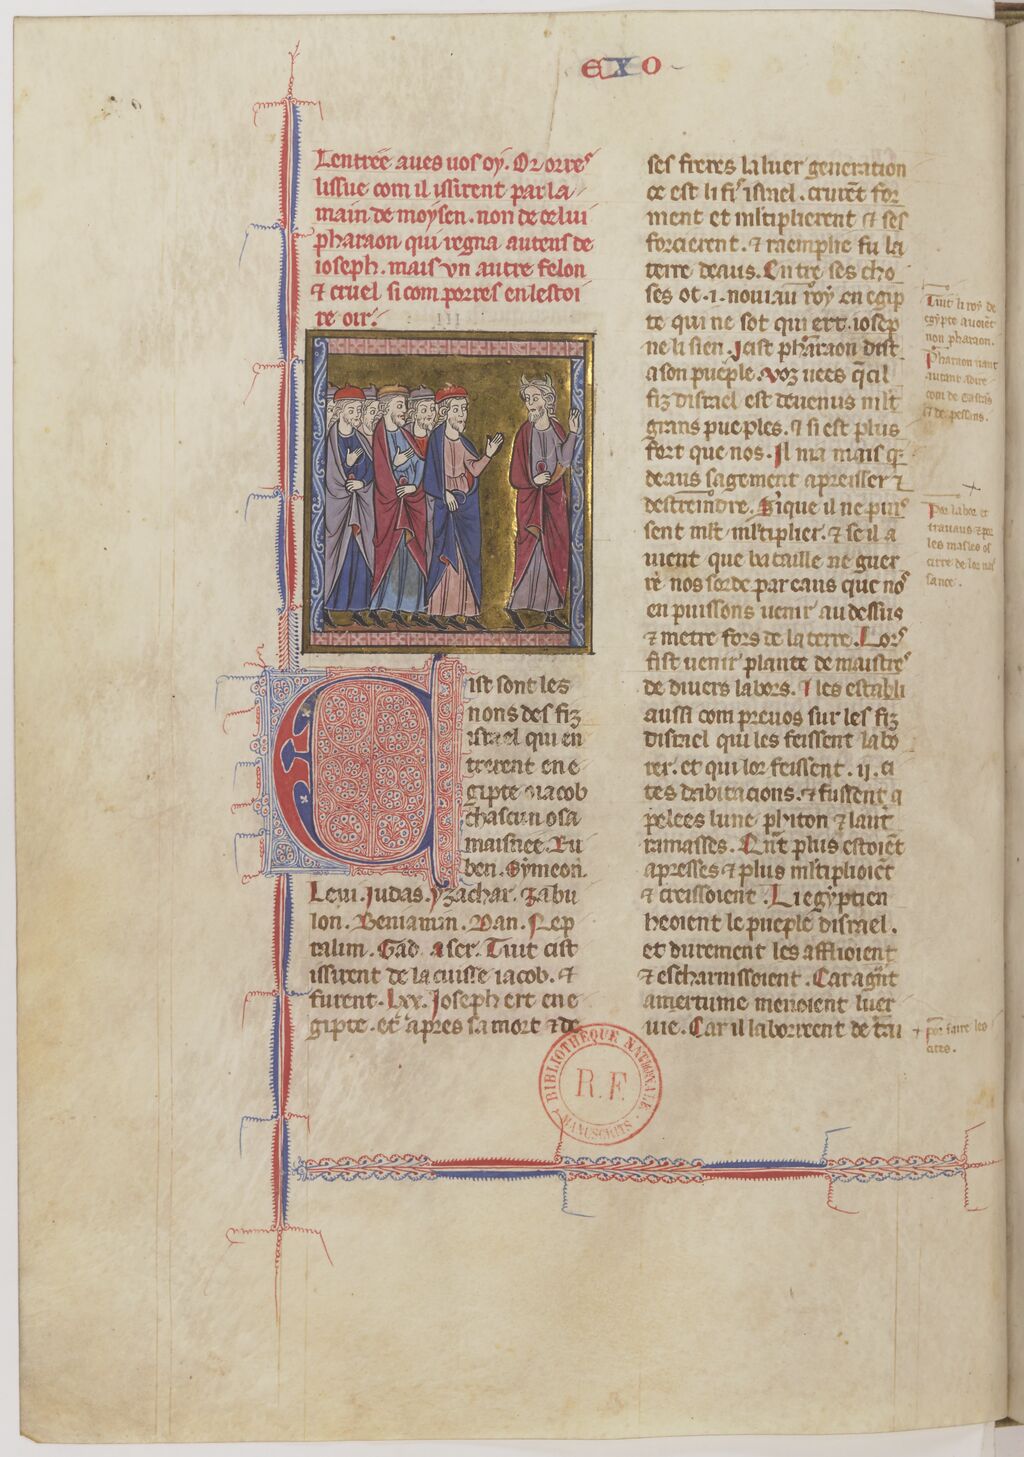 EXO
Lentree aues uos oy. Or orres
lissue com il issirent par la
main de moysen. non de celui
pharaon qui regna autens de
ioseph. mais vn autre felon
⁊ cruel si com porres en lestoi
re oir.
III
Cist sont les
nons des fiz
israel qui en
trerent en e
gipte o iacob
chascun o sa
maisnee. Ru
ben. Symeon.
Leui. Judas. yzachar. Zabu
lon. Beniamin. Dan. Nep
talim. Gad. Aser. Tuit cist
issirent de la cuisse iacob. ⁊
furent. lxx. Joseph ert en e
gipte. et apres sa mort ⁊ de
ses freres la luer generation
ce est li fiz israel. crurēt for
ment et mltiplierent ⁊ ses
forcierent. ⁊ raemplie fu la
terre deaus. Entre ses cho
ses ot .i. nouiau roy en egip
te qui ne sot qui ert iosep
ne li sien. Icist pharaon dist
a son pueple. voz uees q̄ cil
fiz disrael est deuenus mlt
grans pueples. ⁊ si est plus
fort que nos. Il ma mais q̄
deaus sagement apresser ⁊
destreindre. Si que il ne puis
sent mlt mltiplier. ⁊ se il a
uient que bataille ne guer
re nos sorde par eaus que nos
en puissons uenir au dessus
⁊ metre fors de la terre. Lors
fist uenir plante de maistres
de diuers labors. ⁊ les establi
aussi com preuos sur les fiz
disrael qui les feissent labo
rer. et qui lor feissent .ii. ci
tes dabitacions. ⁊ fussent a
pelees lune phiton ⁊ laut
ramasses. Qn̄t plus estoiēt
apresses ⁊ plus mltiplioiēt
⁊ creissoient. Li egyptien
heoient le pueple disrael.
et durement les afflioient
⁊ escharnissoient. Car a gn̄t
amertume menoient luer
uie. Car il laborerent de trau
Tuit li roy de
egypte auoiēt
non pharaon.
Pharaon uaut
autant a dire
com de
Par labor et
trauaus ⁊ par
les masles oc
cirre de lor nais
sance.
+ por faire les
cites.
BIBLIOTHÈQUE NATIONALE
R.F.
MANUSCRITS